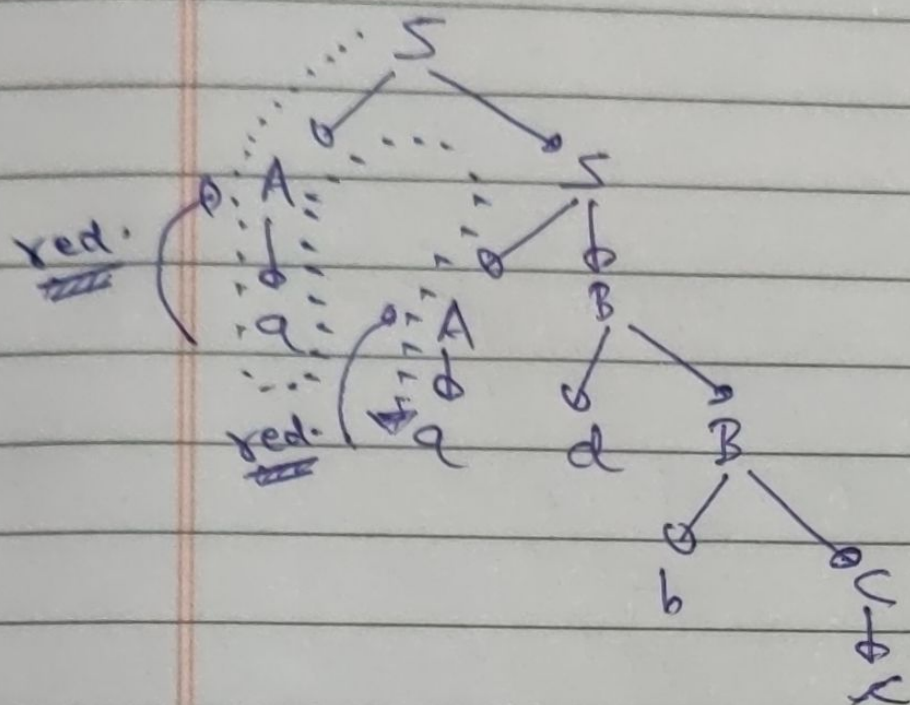 S
A S
red.
a A B
red. a d B
b C